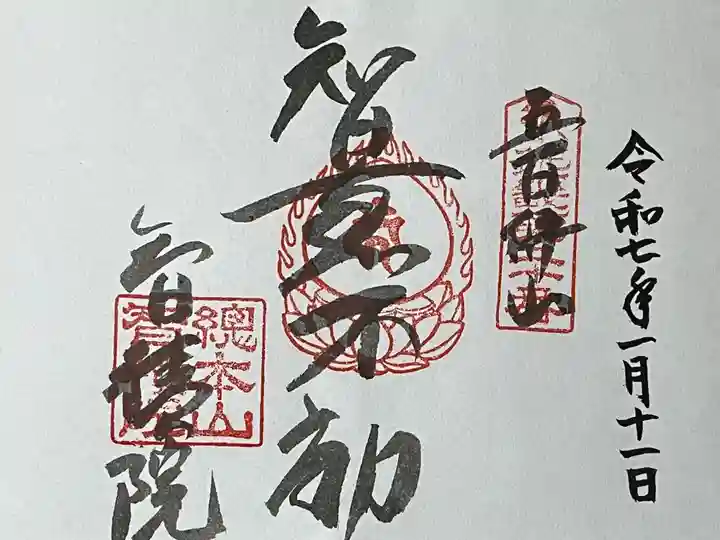 令和七年一月十一日
五百佛山
智慧不動
智積院
總本山